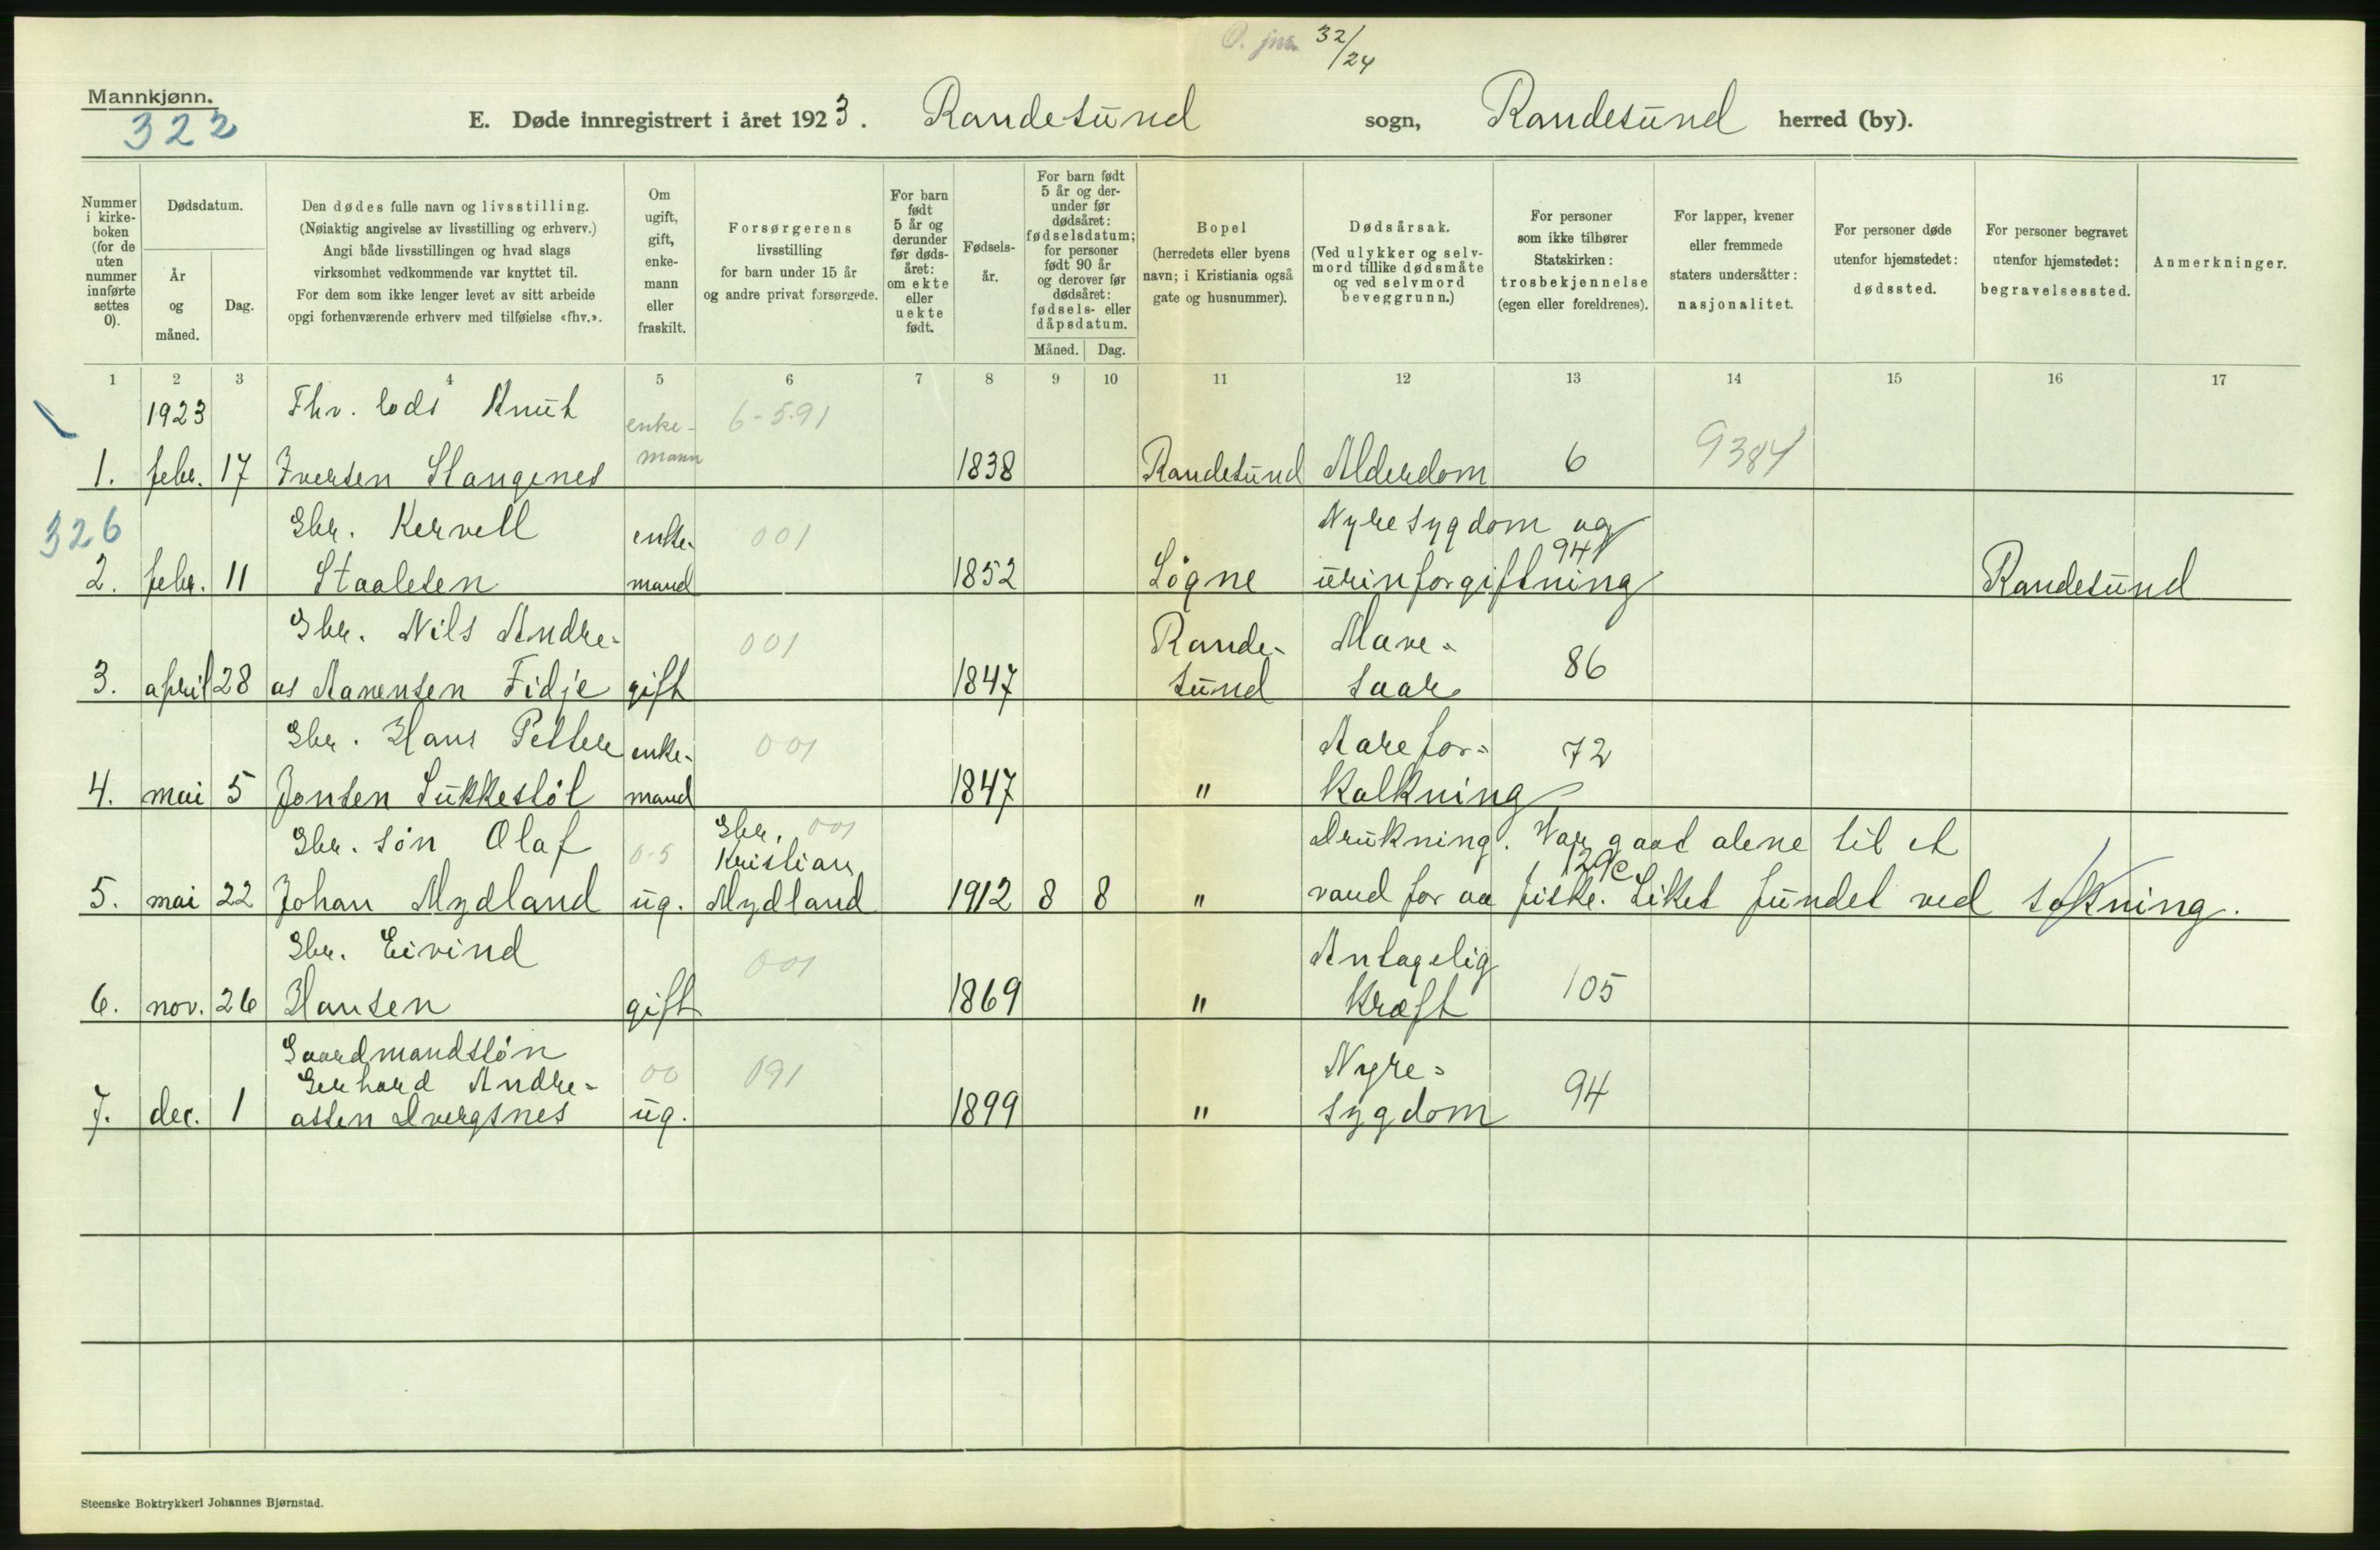 O. jnr. 32/24
Mannkjønn.
322
E. Døde innregistrert i året 1923. Randesund sogn, Randesund herred (by).
Nummer i kirke-boken (for de uten nummer innførte settes 0).
Dødsdatum.
År og måned.
Dag.
Den dødes fulle navn og livsstilling.
(Nøiaktig angivelse av livsstilling og erhverv.)
Angi både livsstillingen og hvad slags
virksomhet vedkommende var knyttet til.
For dem som ikke lenger levet av sitt arbeide
opgi forhenværende erhverv med tilføielse «fhv.».
Om ugift, gift, enke-mann eller fraskilt.
Forsørgerens
livsstilling
for barn under 15 år
og andre privat forsørgede.
For barn født 5 år og derunder før døds-året: om ekte eller uekte født.
Fødsels-år.
For barn født 5 år og der-under før dødsåret: fødselsdatum; for personer født 90 år og derover før dødsåret: fødsels- eller dåpsdatum.
Måned. Dag.
Bopel
(herredets eller byens
navn; i Kristiania også
gate og husnummer).
Dødsårsak.
(Ved ulykker og selv-
mord tillike dødsmåte
og ved selvmord
beveggrunn.)
For personer
som ikke tilhører
Statskirken:
trosbekjennelse
(egen eller foreldrenes).
For lapper, kvener
eller fremmede
staters undersåtter:
nasjonalitet.
For personer døde
utenfor hjemstedet:
dødssted.
For personer begravet
utenfor hjemstedet:
begravelsessted.
Anmerkninger.
1 2 3 4 5 6 7 8 9 10 11 12 13 14 15 16 17
1923 Fhv. lods Knut enke- 6-5.91
1. febr. 17 Iversen Stangenes mann 1838 Randesund Alderdom 6 9384
326 Gbr. Kervell enke- 001 Nyresygdom og
2. febr. 11 Staalesen mand 1852 Søgne urinforgiftning 94 Randesund
Gbr. Nils Andre- 001 Rande- Mave-
3. april 28 as Aanensen Fidje gift 1847 sund saar 86
Gbr. Hans Petter enke- 001 Aarefor- 72
4. mai 5 Jensen Sukkestøl mand 1847 " kalkning
Gbr. søn Olaf 0-5 Gbr. 001 Kristian Drukning. Var gaat alene til et
5. mai 22 Johan Mydland ug. Mydland 1912 8 8 " vand for aa fiske. Liket fundet ved sokning.
Gbr. Eivind 001 Antagelig
6. nov. 26 Hansen gift 1869 " kræft 105
Gaardmandssøn
Gerhard Andre- 00 091 Nyre-
7. dec. 1 assen Dvergsnes ug. 1899 " sygdom 94
Steenske Boktrykkeri Johannes Bjørnstad.